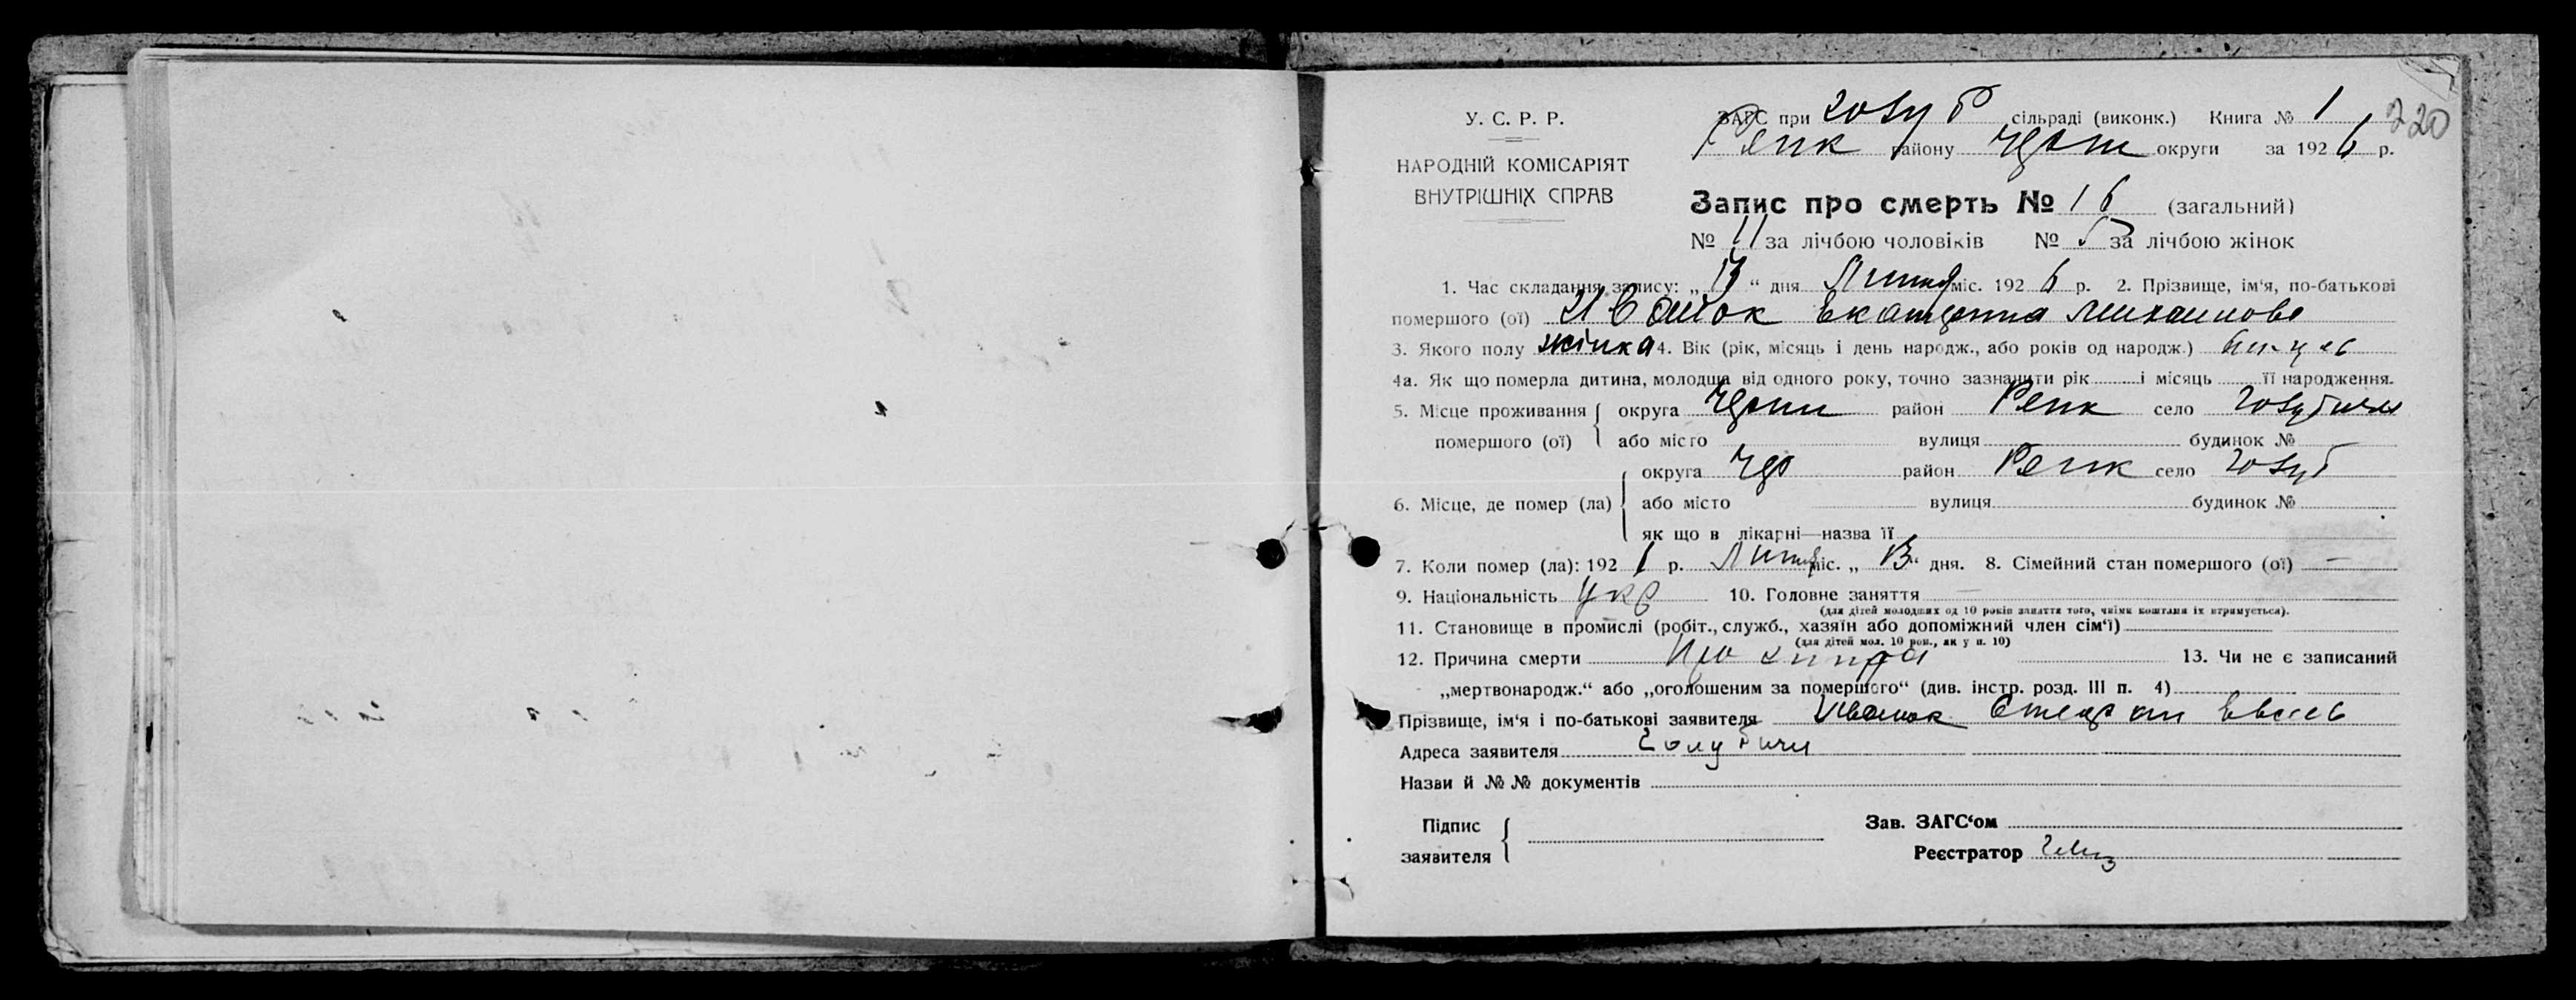 У. С. Р. Р.
НАРОДНІЙ КОМІСАРІЯТ
ВНУТРІШНІХ СПРАВ
ЗАГС при Голуб сільраді (виконк.) Книга № 1 220
Репк району округи за 1926 р.
Запис про смерть № 16 (загальний)
№ 11 за лічбою чоловіків № 5 за лічбою жінок
1. Час складання запису: „ “ дня міс. 1926 р. 2. Прізвище, ім‘я, по-батькові
помершого (ої) Ивашок Екатерина Михаилова
3. Якого полу жінка 4. Вік (рік, місяць і день народж., або років од народж.)
4а. Як що померла дитина, молодша від одного року, точно зазначити рік і місяць її народження.
5. Місце проживання помершого (ої) округа район Репк село Голубичи
або місто вулиця будинок №
6. Місце, де помер (ла) округа район Репк село Голуб
або місто вулиця будинок №
як що в лікарні—назва її
7. Коли помер (ла): 192 р. міс. „13“ дня. 8. Сімейний стан помершого (ої) —
9. Національність Укр 10. Головне заняття —
(для дітей молодших од 10 років заняття того, чиїми коштами їх втримується).
11. Становище в промислі (робіт., служб., хазяїн або допоміжний член сім‘ї)
(для дітей мол. 10 рок., як у п. 10)
12. Причина смерти 13. Чи не є записаний
„мертвонародж.“ або „оголошеним за помершого“ (див. інстр. розд. III п. 4)
Прізвище, ім‘я і по-батькові заявителя Ивашок
Адреса заявителя Голубичи
Назви й № № документів
Підпис заявителя
Зав. ЗАГС‘ом
Реєстратор